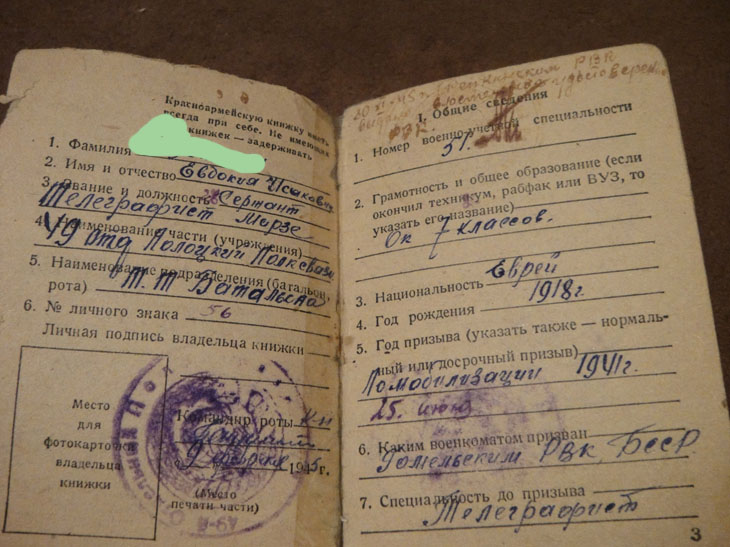 Красноармейскую книжку иметь
всегда при себе. Не имеющих
книжек — задерживать
1. Фамилия
2. Имя и отчество Евдокия Исаковн
3. Звание и должность Сержант
Телеграфист Морзе
4. Наименование части (учреждения)
49 отд Полоцкий Полк связи
5. Наименование подразделения (батальон,
рота) Т. Т Батальона
6. № личного знака 56
Личная подпись владельца книжки
Место
для
фотокарточки
владельца
книжки
Командир роты
9 февраля 1945г.
(Место
печати части)
20 XI-45 г. РВК
выдано
РВК.
I. Общие сведения
1. Номер военно-учетной специальности
51.
2. Грамотность и общее образование (если
окончил техникум, рабфак или ВУЗ, то
указать его название)
Ок 7 классов.
3. Национальность Еврей
4. Год рождения 1918г.
5. Год призыва (указать также — нормаль-
ный или досрочный призыв)
По мобилизации 1941г.
25. июня
6. Каким военкоматом призван
Гомельским РВК, БССР
7. Специальность до призыва
Телеграфист
3